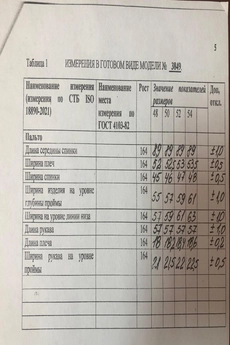 5
Таблица 1 ИЗМЕРЕНИЯ В ГОТОВОМ ВИДЕ МОДЕЛИ № 3849
Наименование измерения (измерения по СТБ ISO 18890-2021) Наименование места измерения по ГОСТ 4103-82 Рост Значение показателей размеров Доп. откл.
48 50 52 54
Пальто
Длина середины спинки 164 ±1,0
Ширина плеч 164 52 52,5 53 53,5 ±0,5
Ширина спинки 164 45 46 47 48 ±0,5
Ширина изделия на уровне глубины проймы 164 55 57 59 61 ±1,0
Ширина на уровне линии низа 164 57 59 61 63 ±1,0
Длина рукава 164 57 57 57 57 ±1,0
Длина плеча 164 18 ±0,2
Ширина рукава на уровне проймы 164 21 21,5 22 22,5 ±0,5